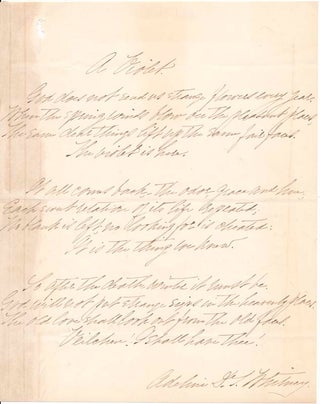 A Violet.
God does not send us strange flowers every year.
When the spring winds blow o'er the pleasant places,
The same dear things lift up the same fair faces.
The violet is here.
It all comes back; the odor, grace and hue;
Each sweet relation of its life repeated;
No blank is left, no looking for is cheated;
It is the thing we knew.
So after the death winter it must be.
God will not put strange signs in the heavenly places:
The old love shall look out from the old faces.
Veilchen! I shall have thee!
Adeline D. T. Whitney